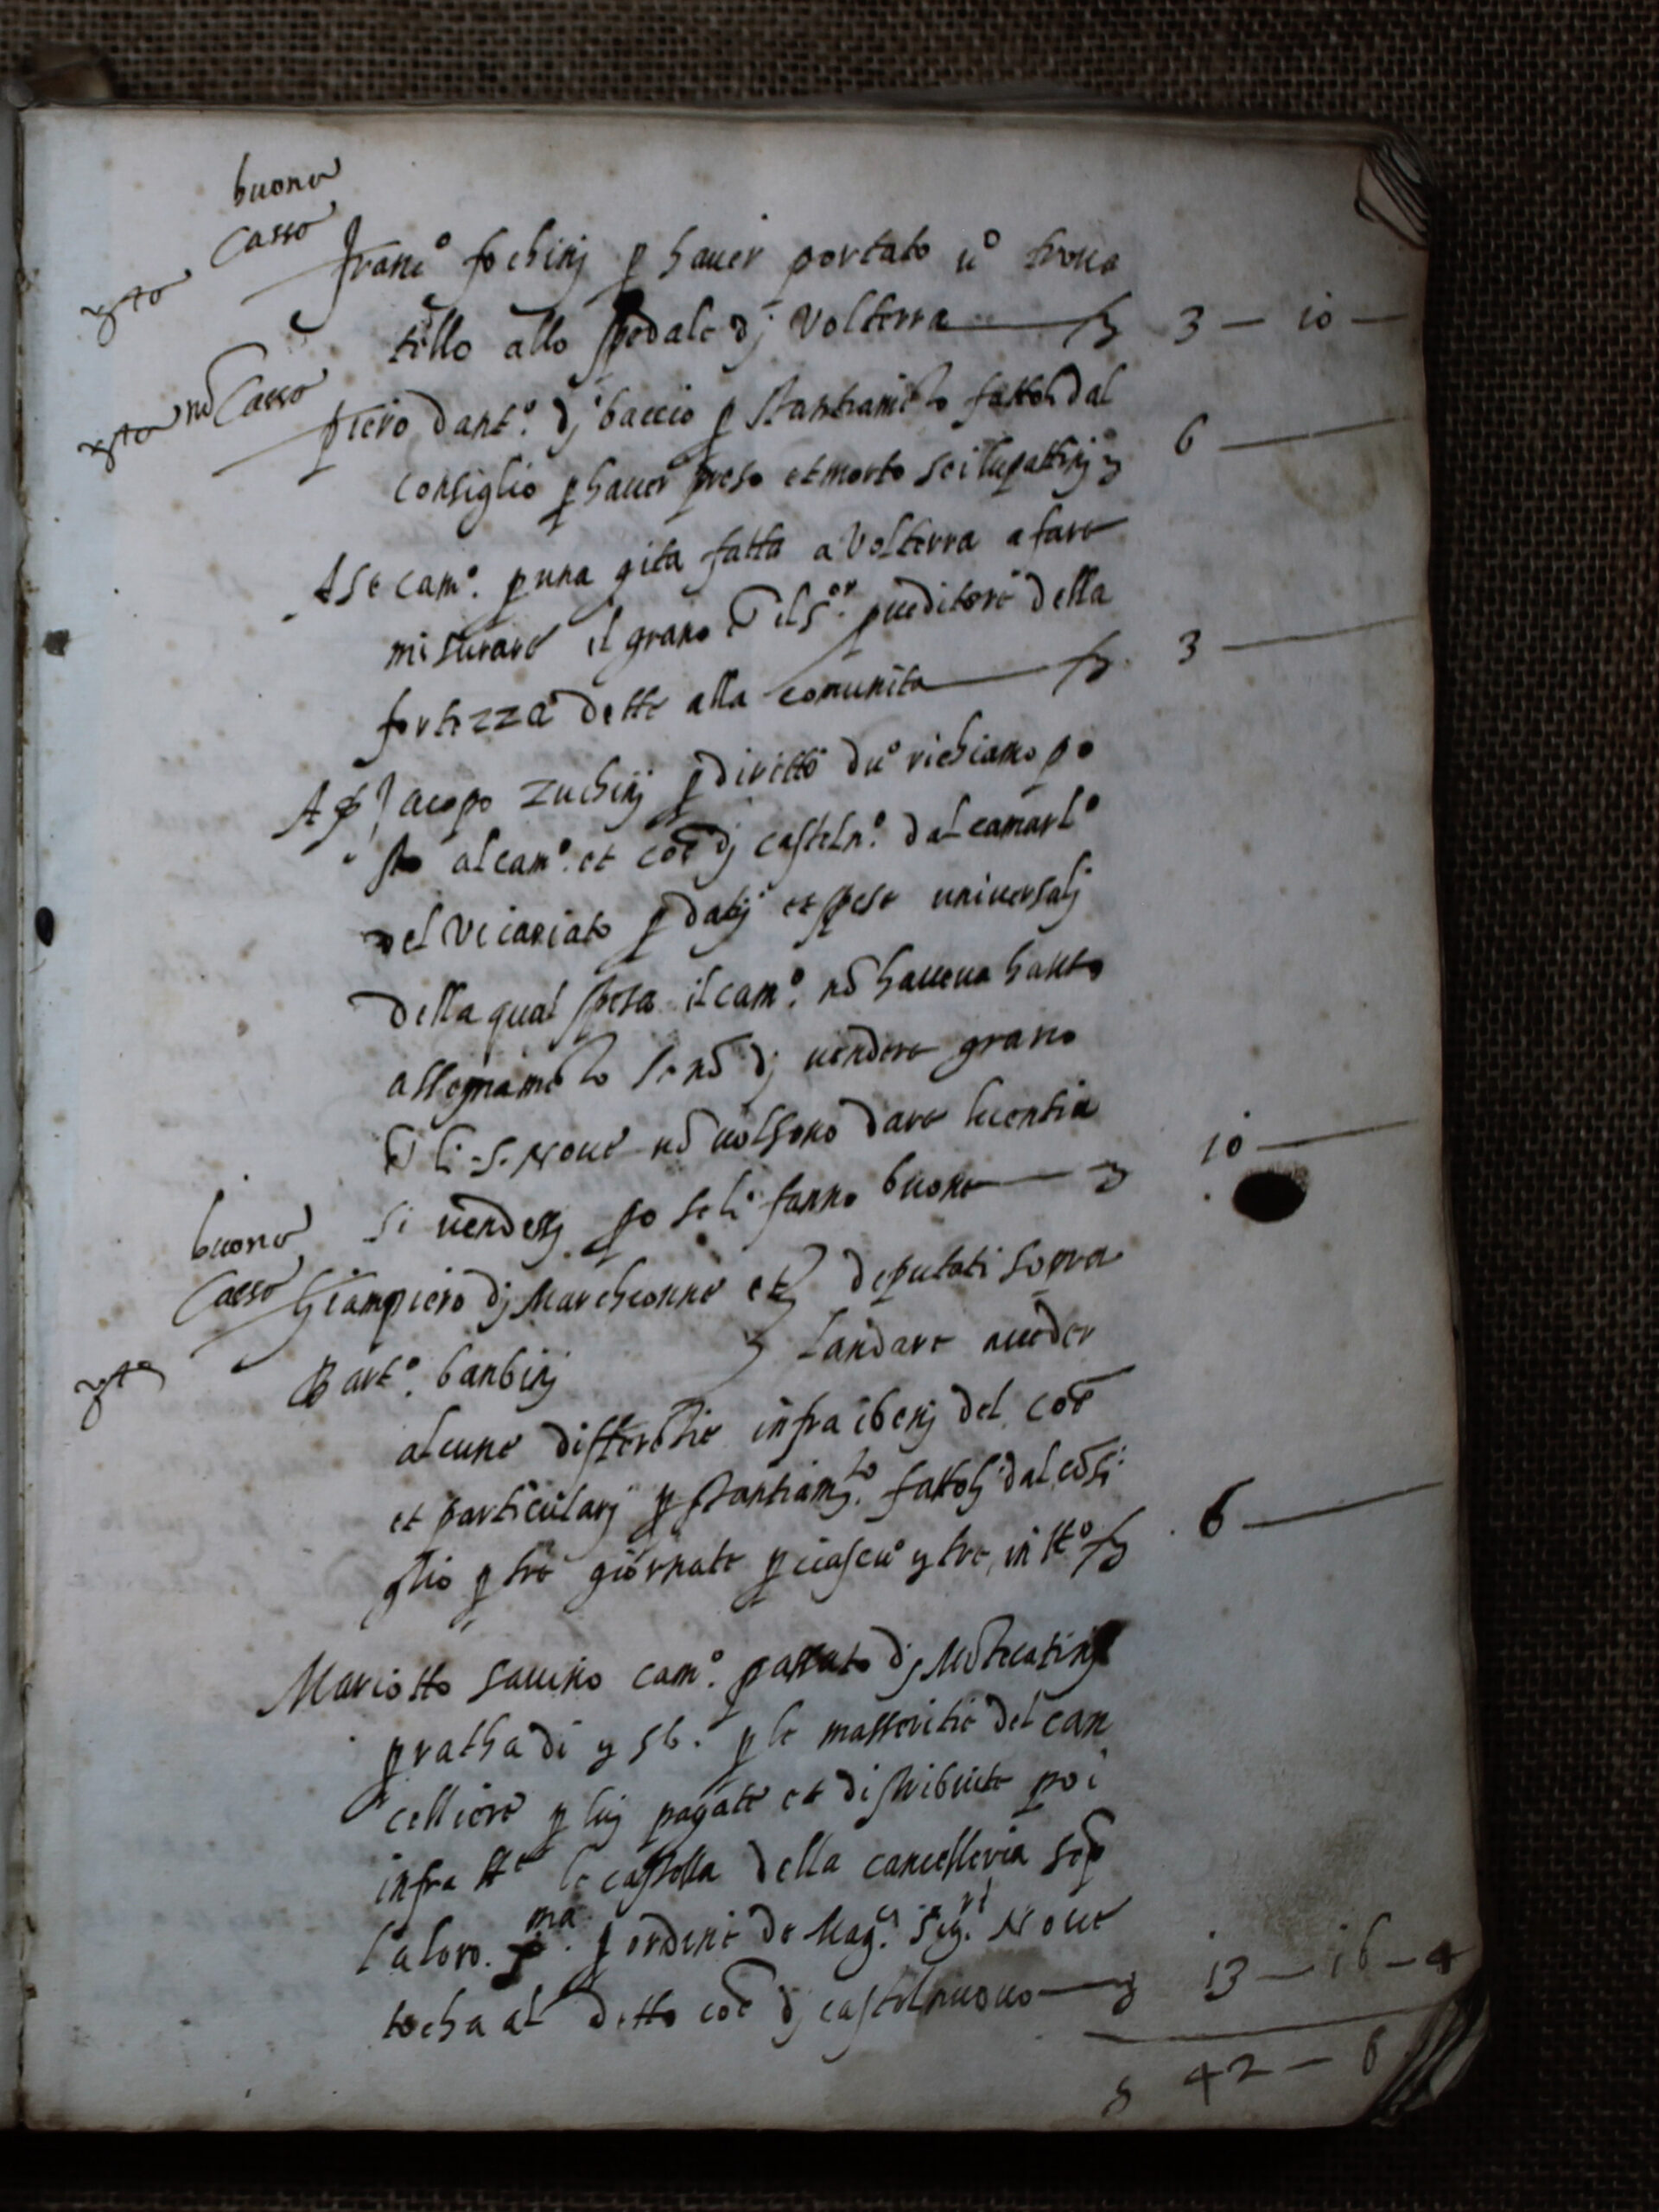 buono
Casso
Franc.º fochinj p haver portato uº trova
tello allo spedale dj Volterra 3 — 10 —
nō Casso
piero d ant.º dj baccio p stantiamēto fattolj dal
consiglio p haver preso et morto sei lupattinj 6 —
A se cam.º p una gita fatta a Volterra a fare
misurare il grano il S.or pveditore della
fortezza dette alla comunita 3 —
A Jacopo Zuchinj p diritto du.º richiamo po
sto al cam.º et coē dj casteln.º dal camarl.º
del Vicariato p datij et spese universalj
della qual spesa il cam.º nō haveva hauto
assegnamēto se nō dj vendere grano
li S. Nove nō volsono dare licentia
si vendessj po se li fanno buone 10 —
buono
Casso
Giampiero dj Marchionne et deputati sopra
Bart.º banbinj landare a veder
alcune differētie infra i benj del coē
et particularj p stantiam.to fattolj dal cōsi
glio p tre giornate p ciascuº tre in tt.º 6 —
Mariotto Savino cam.º passato dj Mōtecatinj
p ratha di 56. p le masseritie del can
celliere p luj pagate et distribuite poi
infra tt.e le castella della cancelleria sep
la loro ma. p ordine de Mag.ci Sig.ri Nove
tocha al detto coē dj castelnuovo 13 — 16 — 4
42 — 6